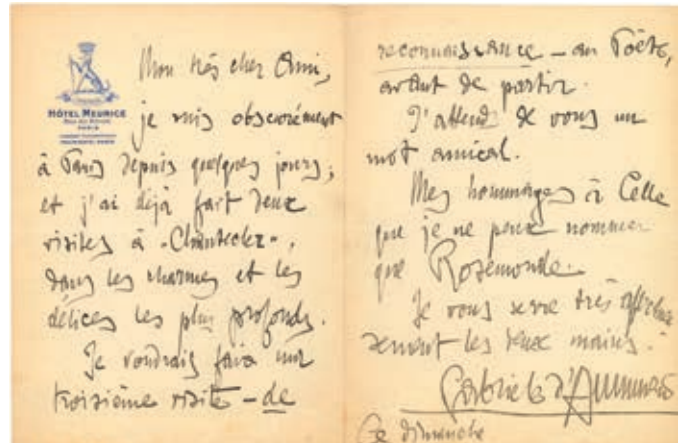 HÔTEL MEURICE
PARIS
Mon très cher Ami,
je suis obscurément
à Paris depuis quelques jours;
et j'ai déjà fait deux
visites à "Chantecler",
dans les charmes et les
délices les plus profonds.
Je voudrais faire une
troisième visite – de
reconnaissance – au Poëte,
avant de partir.
J'attends de vous un
mot amical.
Mes hommages à Celle
que je ne peux nommer
que Rosemonde.
Je vous serre très affectueu
sement les deux mains.
Gabriele d'Annunzio
Ce dimanche